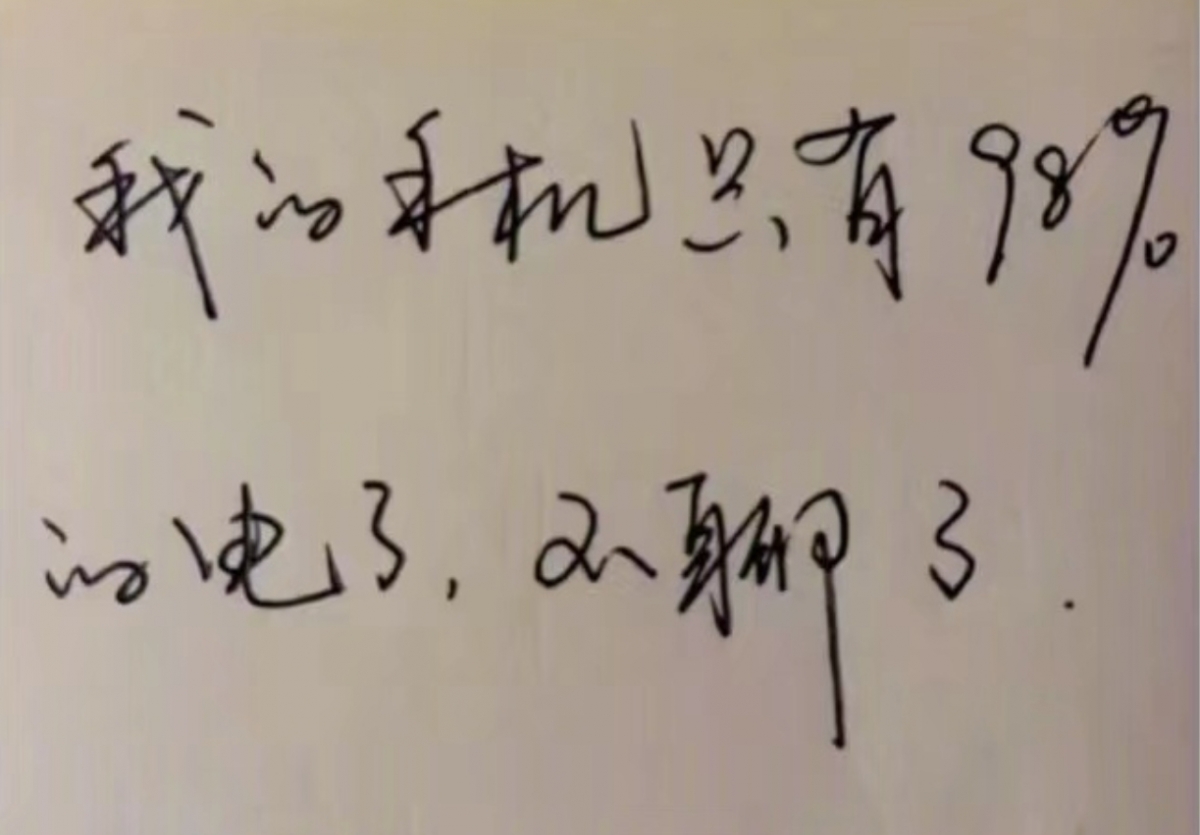 我的手机只有98%
的电了,不聊了.